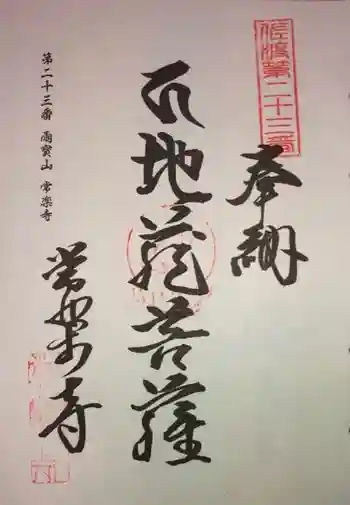 佐波第二十三番
奉納
地蔵菩薩
常楽寺
第二十三番 雨寶山 常楽寺